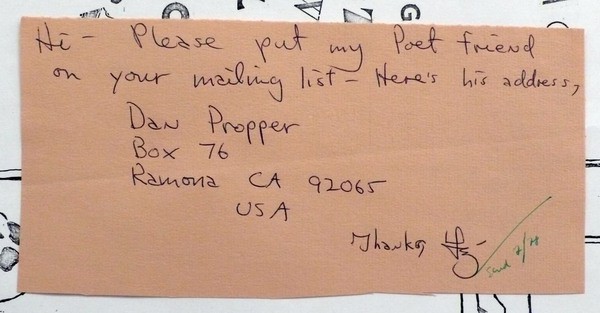 Hi - Please put my Poet friend
on your mailing list - Here's his address,
Dan Propper
Box 76
Ramona CA 92065
USA
Thanks,